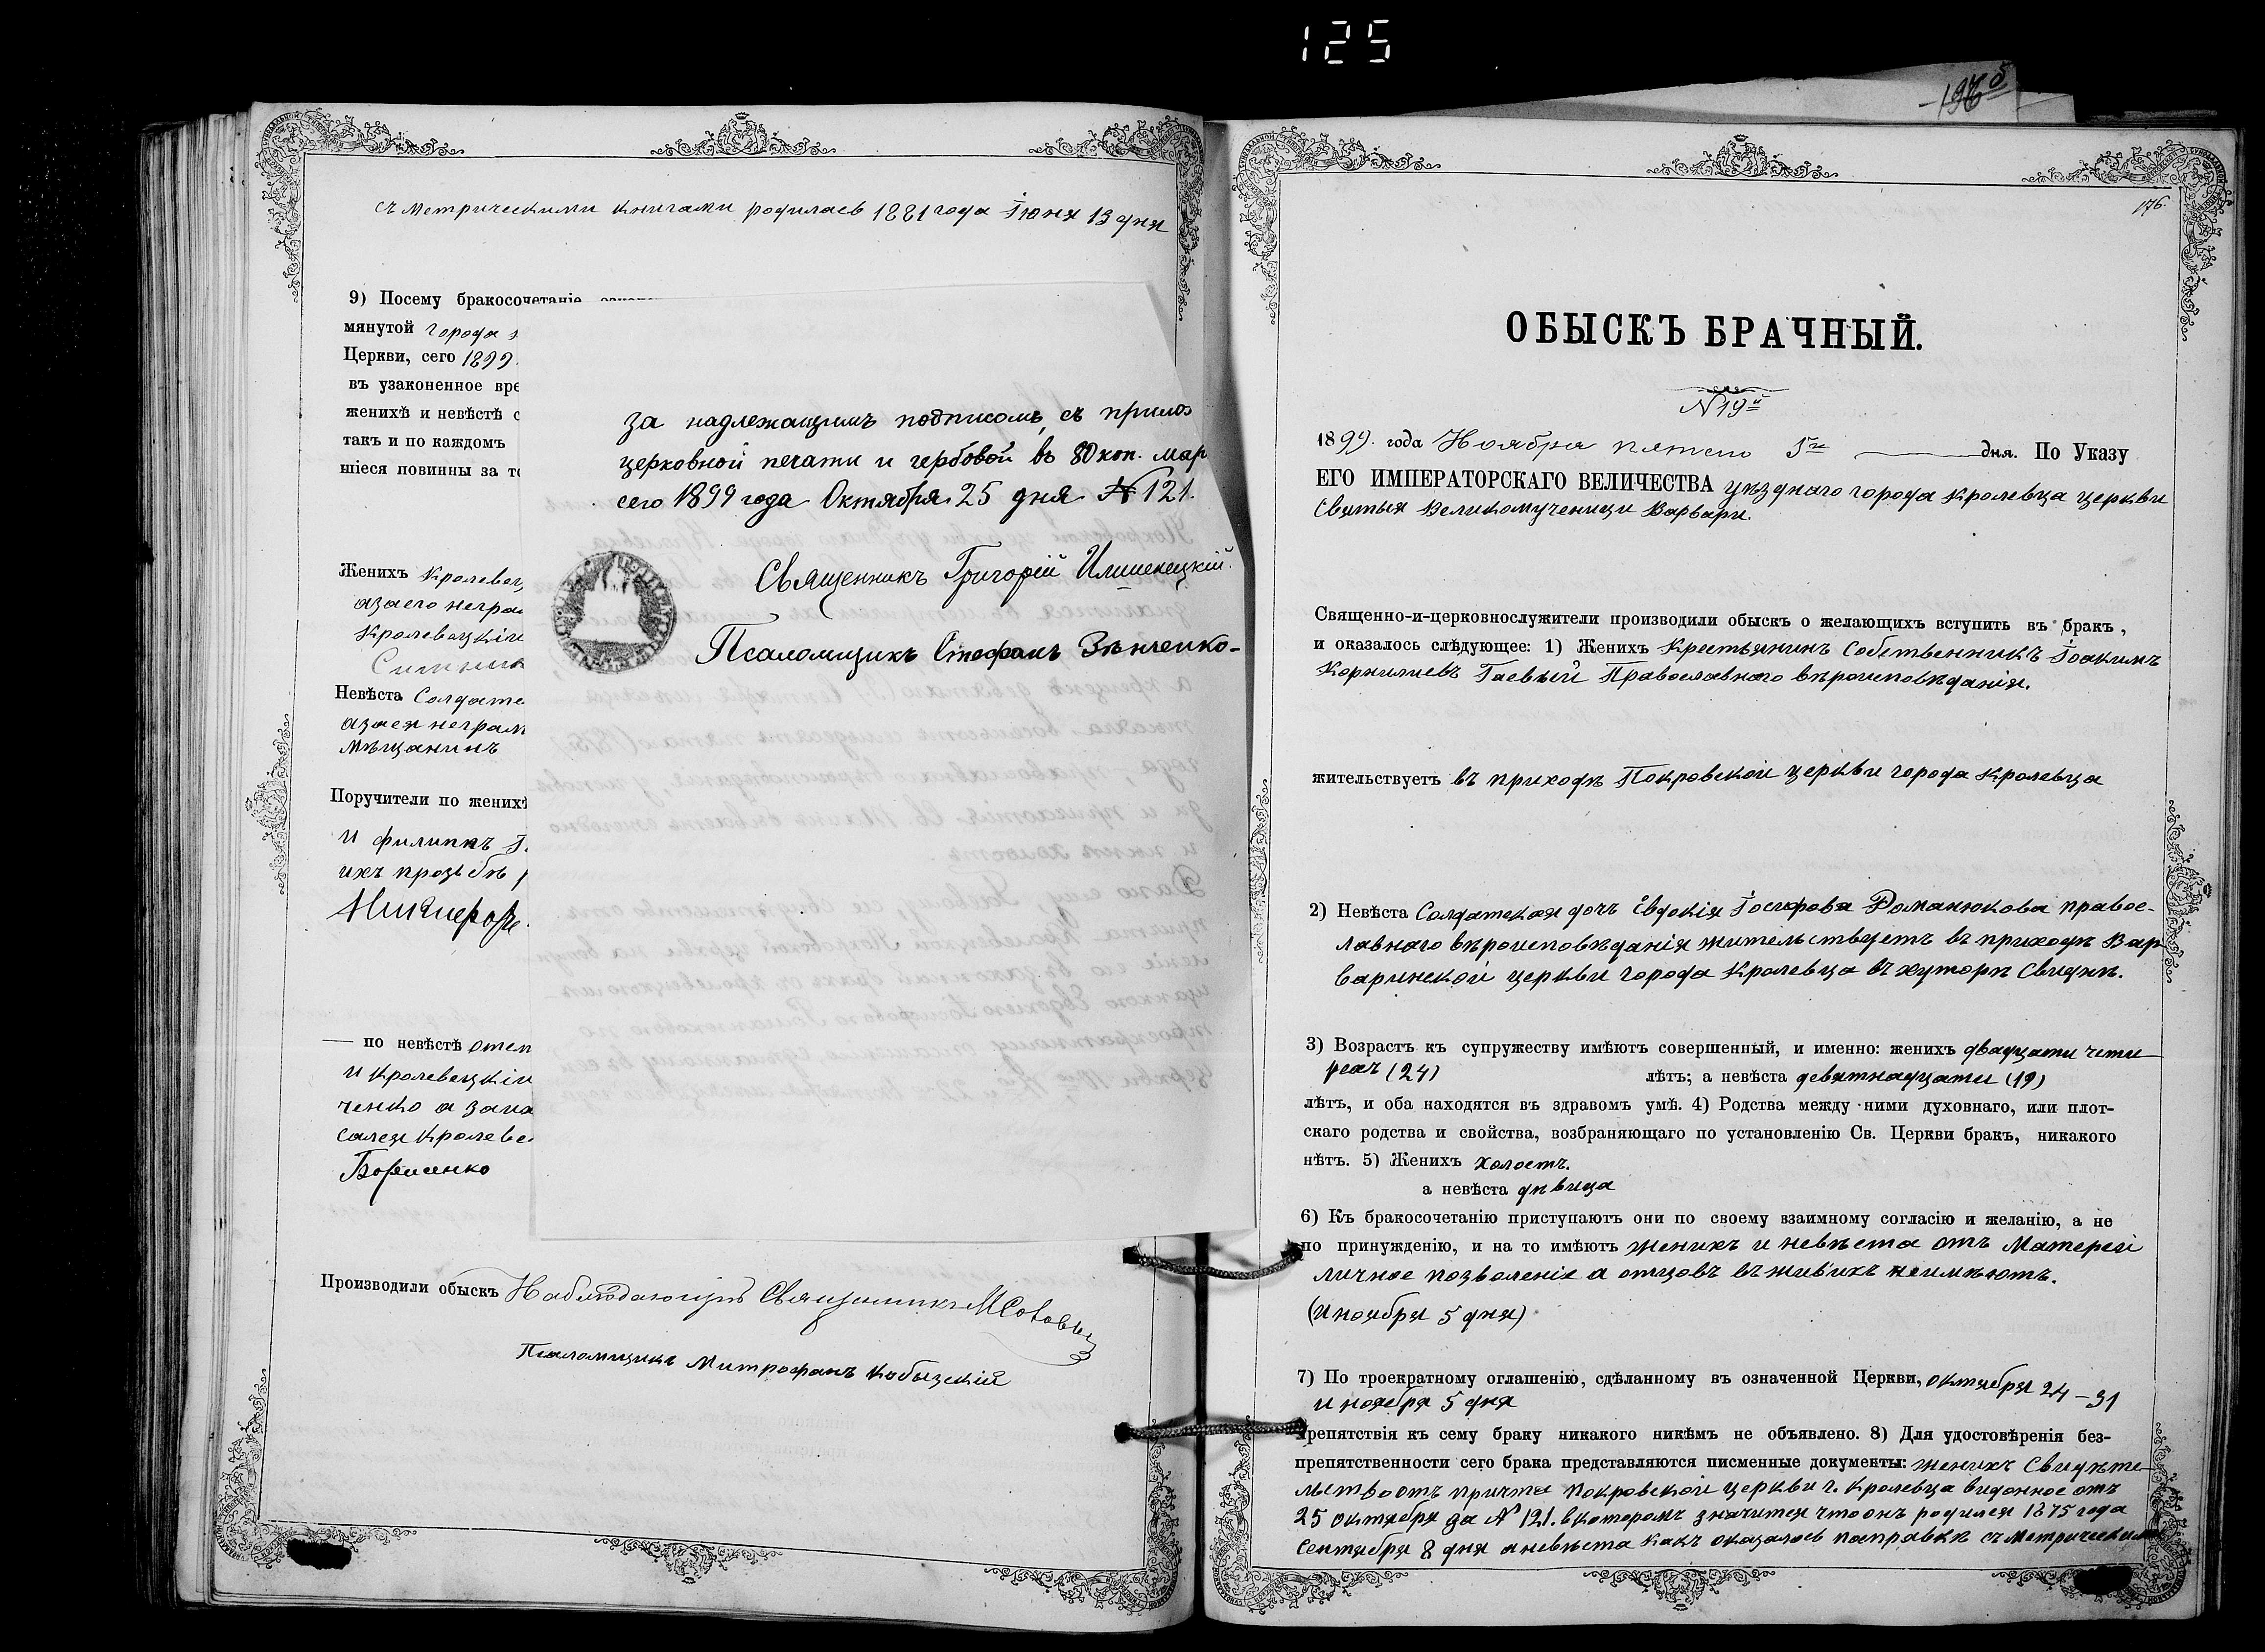 125
176.
съ метрическими книгами родилась 1881 года Іюня 13 дня
9) Посему бракосочетаніе
мянутой города
Церкви, сего 1899
въ узаконенное вре
женихѣ и невѣстѣ с
такъ и по каждомъ
шіеся повинны за то
Женихъ Кролевец
азаего неграм
Кролевецкій
Невѣста Солдатс
азаея неграм
мѣщанинъ
Поручители по женихѣ
и филиппъ
ихъ прозьбѣ
— по невѣстѣ
и кролевецкій
ченко а
Кролеве
Борисенко
за надлежащимъ подписомъ, съ прилож
церковной печати и гербовой въ 80 коп. мар
сего 1899 года Октября 25 дня № 121.
Священникъ Григорій
Псаломщикъ Стефанъ Зѣнченко
Производили обыскъ Наблюдающій Священникъ
Псаломщикъ Митрофанъ Кибызскій
ОБЫСКЪ БРАЧНЫЙ.
№ 19й
1899. года Ноября пятаго 5го дня. По Указу
ЕГО ИМПЕРАТОРСКАГО ВЕЛИЧЕСТВА уѣзднаго города Кролевца церкви
Святыя Великомученици Варвари.
Священно-и-церковнослужители производили обыскъ о желающихъ вступить въ бракъ,
и оказалось слѣдующее: 1) Женихъ Крестьянинъ Собственникъ Іоакимъ
Корнилиевъ Гаевый Православнаго вѣроисповѣданія.
жительствуетъ въ приходѣ Покровской церкви города Кролевца
2) Невѣста Солдатская дочь Евдокія Іосифова Романюкова правос-
лавнаго вѣроисповѣданія жительствуетъ въ приходѣ Вар-
варинской церкви города Кролевца въ хуторѣ Свиднѣ.
3) Возрастъ къ супружеству имѣютъ совершенный, и именно: женихъ двадцати чети
рехъ (24) лѣтъ; а невѣста девятнадцати (19)
лѣтъ, и оба находятся въ здравомъ умѣ. 4) Родства между ними духовнаго, или плот-
скаго родства и свойства, возбраняющаго по установленію Св. Церкви бракъ, никакого
нѣтъ. 5) Женихъ холостъ.
а невѣста дѣвица
6) Къ бракосочетанію приступаютъ они по своему взаимному согласію и желанію, а не
по принужденію, и на то имѣютъ женихъ и невѣста отъ Матерей
личное позволеніе а отцовъ въ живихъ неимѣютъ.
(и ноября 5 дня)
7) По троекратному оглашенію, сдѣланному въ означенной Церкви, октября 24 – 31
и ноября 5 дня
препятствія къ сему браку никакого никѣмъ не объявлено. 8) Для удостовѣренія без-
препятственности сего брака представляются писменные документы: женихъ Свидѣте
льство отъ причта Покровской церкви г. Кролевца виданное отъ
25 октября за № 121. в которомъ значится что онъ родился 1875 года
Сентября 8 дня а невѣста какъ оказалось посправкѣ съ Метрическими